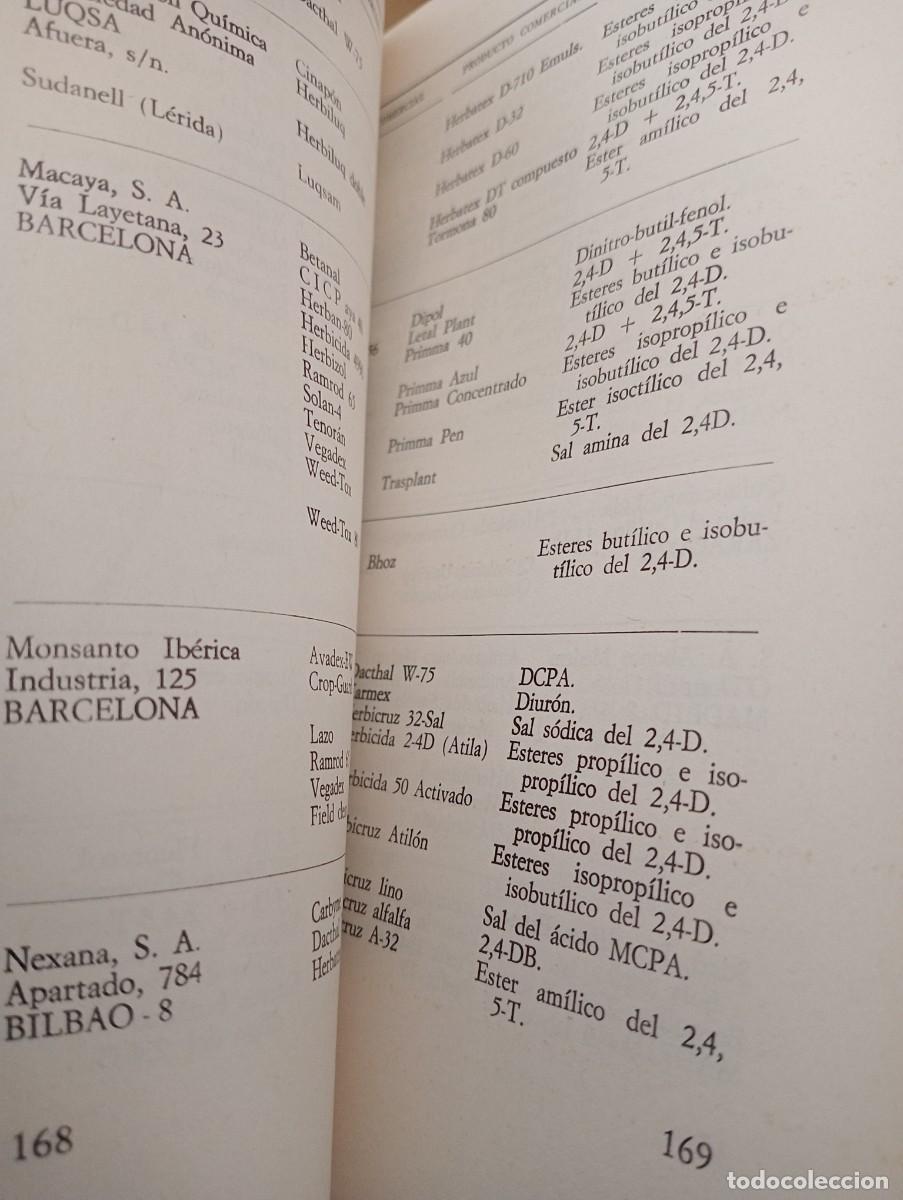 Química
Sociedad Anónima
LUQSA
Afuera, s/n.
Sudanell (Lérida)
Dacthal W-75
Cinapón
Herbiluq
Herbiluq
Luqsam
Macaya, S. A.
Vía Layetana, 23
BARCELONA
Betanal
C I C P
Herban-80
Herbicida
Herbizol
Ramrod 65
Solan-4
Tenorán
Vegadex
Weed-Tox
Weed-Tox
Monsanto Ibérica
Industria, 125
BARCELONA
Avadex-
Crop-
Lazo
Ramrod
Vegadex
Field
Nexana, S. A.
Apartado, 784
BILBAO - 8
Dacthal
168
PRODUCTO COMERCIAL
Herbatex D-710 Emuls.
Esteres isopropílico e
isobutílico del 2,4-D.
Herbatex D-32
Esteres isopropílico e
isobutílico del 2,4-D.
Herbatex D-60
Herbatex DT compuesto
2,4-D + 2,4,5-T.
Tormona 80
Ester amílico del 2,4,
5-T.
Dipol
Dinitro-butil-fenol.
Letal Plant
2,4-D + 2,4,5-T.
Primma 40
Esteres butílico e isobu-
tílico del 2,4-D.
Primma Azul
2,4-D + 2,4,5-T.
Primma Concentrado
Esteres isopropílico e
isobutílico del 2,4-D.
Primma Pen
Ester isoctílico del 2,4,
5-T.
Trasplant
Sal amina del 2,4D.
Bhoz
Esteres butílico e isobu-
tílico del 2,4-D.
Dacthal W-75
DCPA.
Karmex
Diurón.
erbicruz 32-Sal
Sal sódica del 2,4-D.
erbicida 2-4D (Atila)
Esteres propílico e iso-
propílico del 2,4-D.
bicida 50 Activado
Esteres propílico e iso-
propílico del 2,4-D.
bicruz Atilón
Esteres isopropílico e
isobutílico del 2,4-D.
icruz lino
Sal del ácido MCPA.
cruz alfalfa
2,4-DB.
ruz A-32
Ester amílico del 2,4,
5-T.
169
todocoleccion